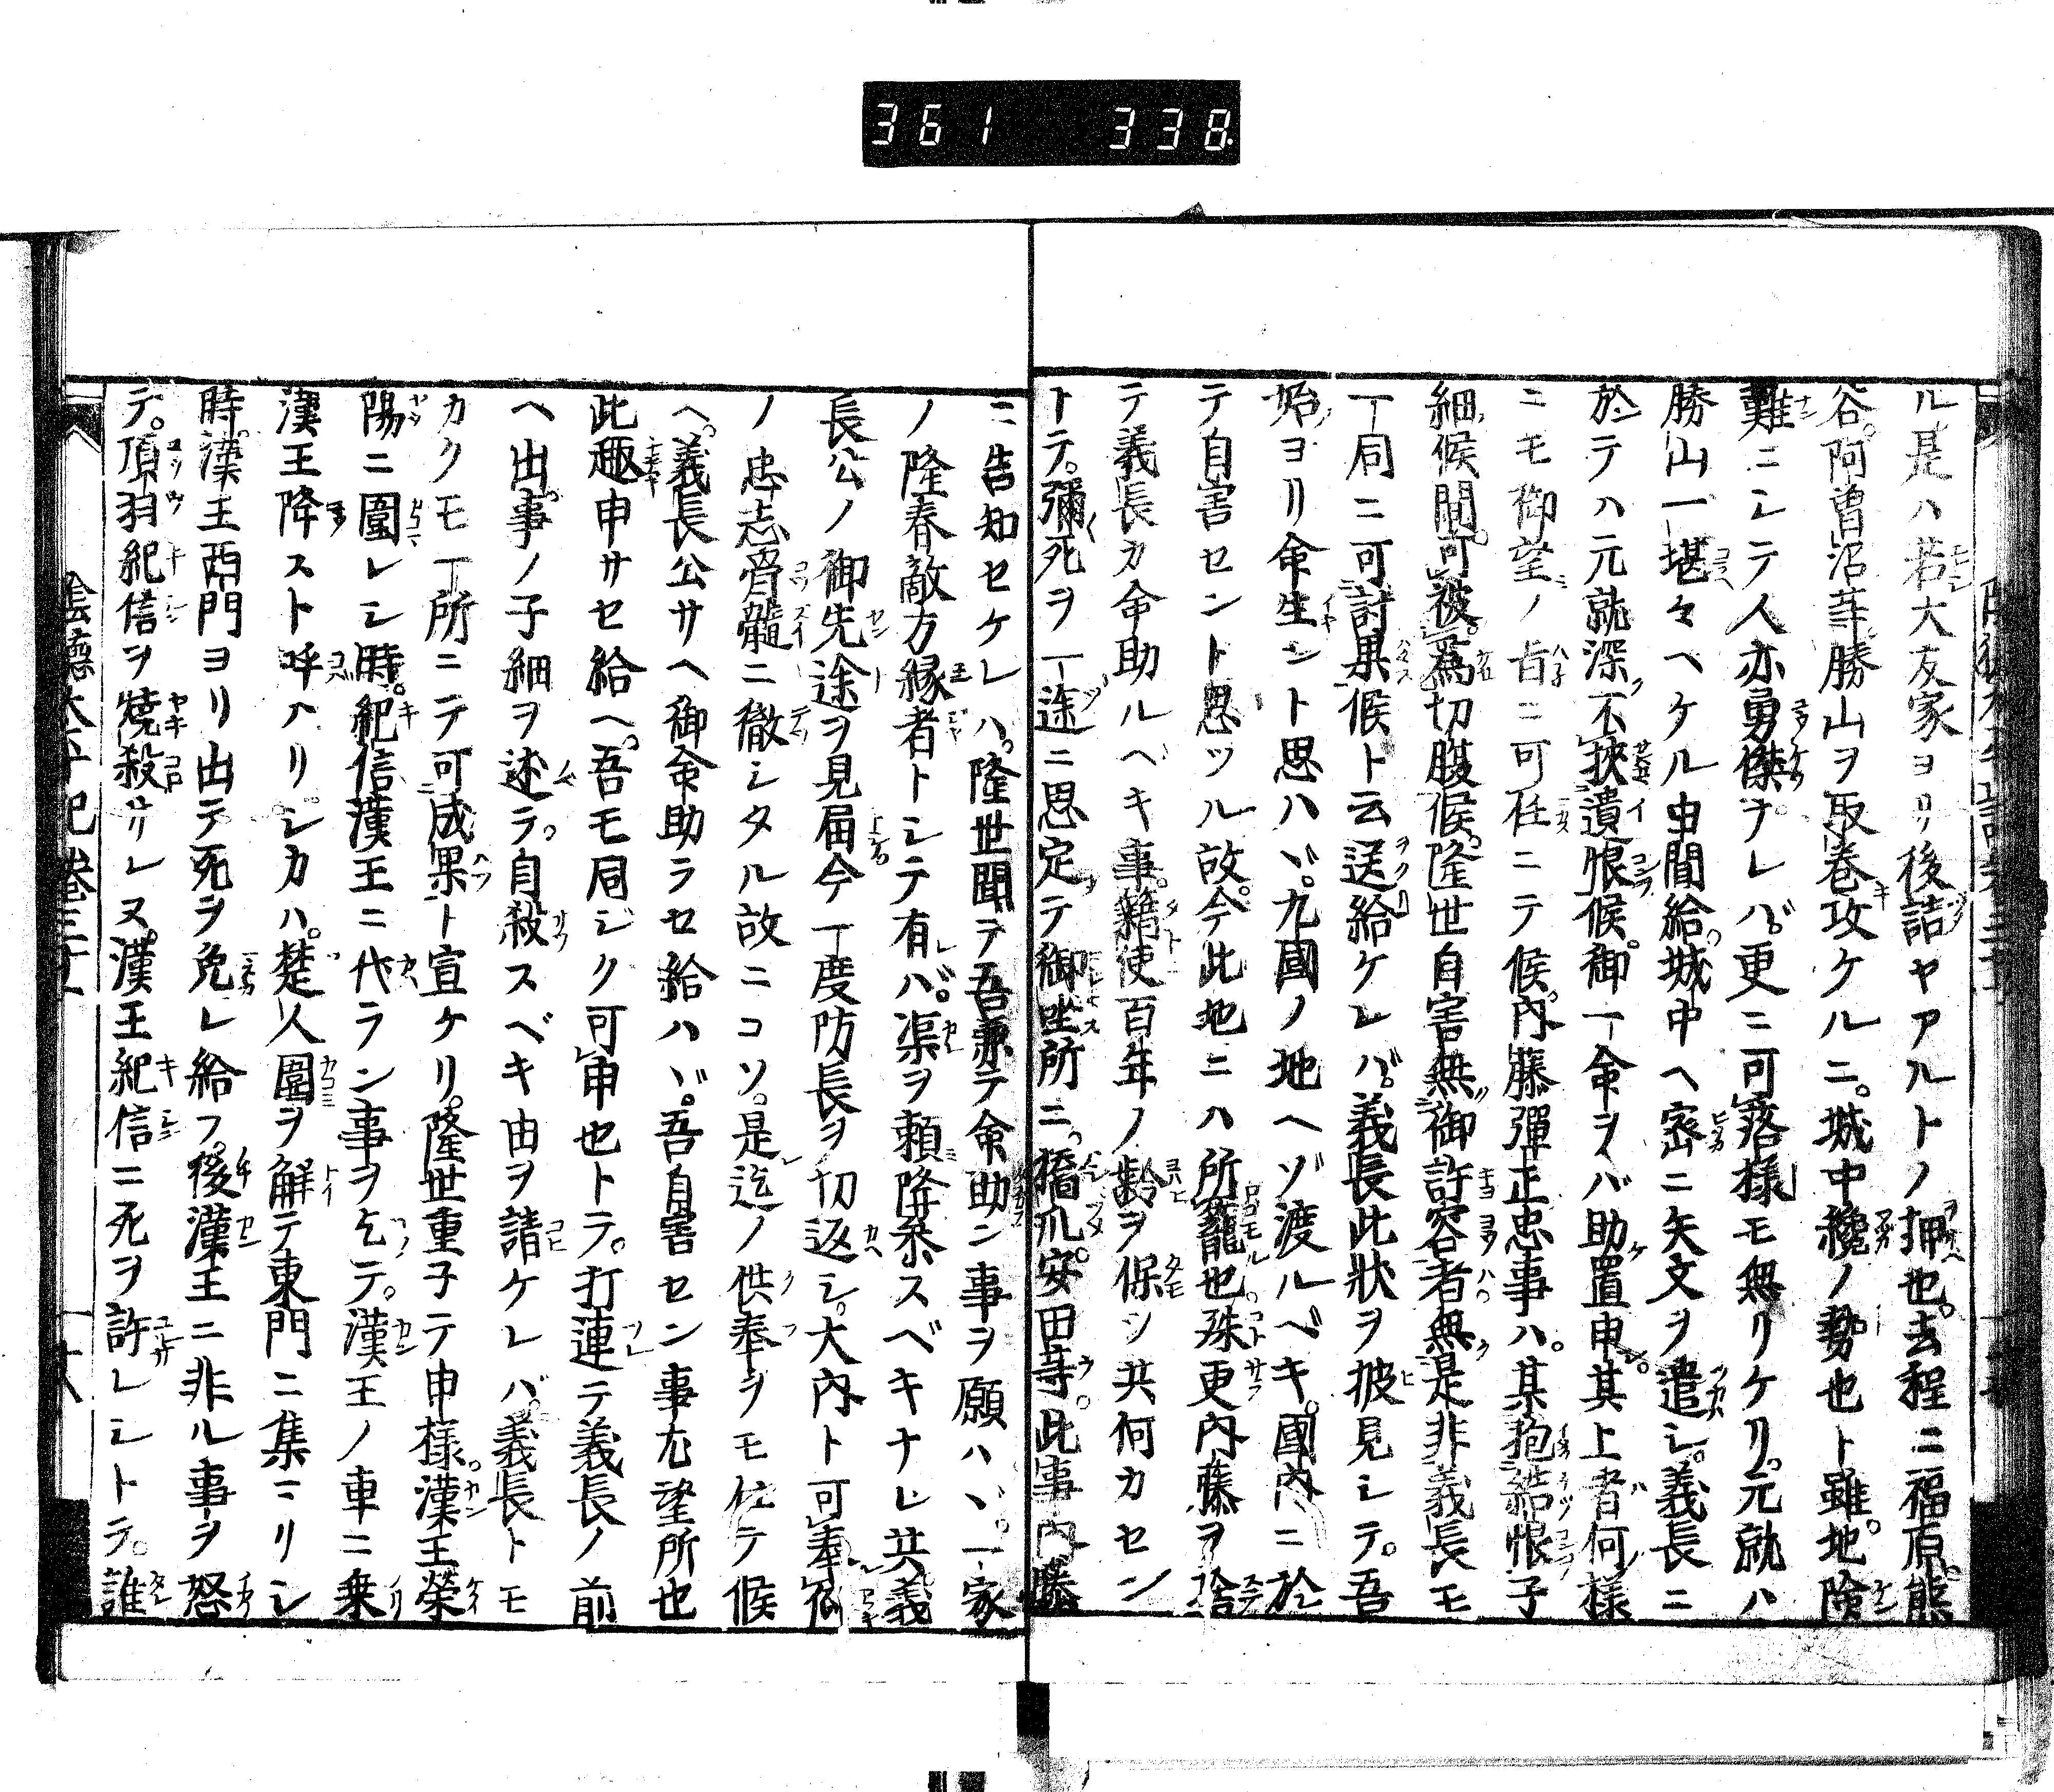 361 338
ル是ハ若大友家ヨリ後詰ヤアルトノ押也。去程ニ福原。熊
谷。阿曽沼等勝山ヲ取巻攻ケルニ。城中纔ノ勢也ト雖。地険
難ニシテ人亦勇傑ヲレバ。更ニ可落様モ無リケリ。元就ハ
勝山一堪々ヘケル由聞給。城中ヘ密ニ矢文ヲ遣シ。義長ニ
於テハ元就深不挾遺恨候。御一命ヲバ助置申。其上者何様
ニモ御望ノ旨ニ可任ニテ候。内藤彈正忠事ハ。某抱結恨子
細候間。可被為切腹候。隆世自害無御許容者無是非義長モ
一同ニ可討果候ト云送給ケレバ。義長此状ヲ披見シテ。吾
始ヨリ命生ント思ハヾ。九國ノ地ヘゾ渡ルベキ。國内ニ於
テ自害セント思ツル故。今此地ニハ所籠也。殊更内藤ヲ捨
テ義長カ命助ルベキ事。縦使百年ノ齢ヲ保ツ共何カセン
トテ。彌死ヲ一途ニ思定テ御坐所ニ。橋爪。安田等。此事内藤
ニ告知セケレハ。隆世聞ヲ吾兼テ命助ン事ヲ願ハヾ。一家
ノ隆春敵方縁者トシテ有バ。渠ヲ頼降参スベキナレ共義
長公ノ御先途ヲ見届今一度防長ヲ切返シ。大内ト可奉仰
ノ忠志骨髓ニ徹シタル故ニコソ。是迄ノ供奉ヲモ仕テ候
ヘ。義長公サヘ御命助ラセ給ハヾ。吾自害セン事尤望所也
此趣申サセ給ヘ。吾モ同ジク可申也トテ。打連テ義長ノ前
ヘ出。事ノ子細ヲ述テ。自殺スベキ由ヲ請ケレバ。義長トモ
カクモ一所ニテ可成果ト宣ケリ。隆世重子テ申様。漢王榮
陽ニ圍レシ時。紀信漢王ニ代ラン事ヲ乞テ。漢王ノ車ニ乗
漢王降スト呼ハリシカハ。楚人圍ヲ解テ東門ニ集ニリシ
時。漢王西門ヨリ出テ死ヲ免レ給フ。後漢王ニ非ル事ヲ怒
テ。項羽紀信ヲ焼殺サレヌ。漢王紀信ニ死ヲ許レシトテ。誰
陰徳太平記巻三十
十八